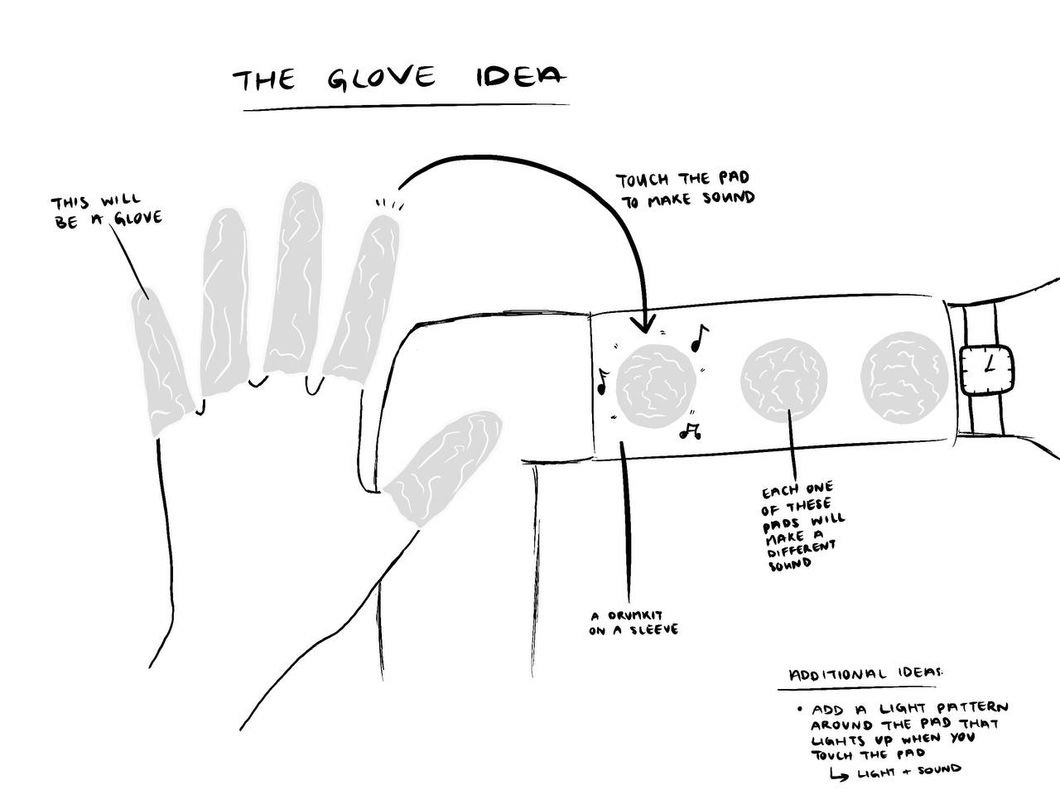 THE GLOVE IDEA
THIS WILL
BE A GLOVE
TOUCH THE PAD
TO MAKE SOUND
EACH ONE
OF THESE
PADS WILL
MAKE A
DIFFERENT
SOUND
A DRUMKIT
ON A SLEEVE
ADDITIONAL IDEAS:
• ADD A LIGHT PATTERN
AROUND THE PAD THAT
LIGHTS UP WHEN YOU
TOUCH THE PAD
↳ LIGHT + SOUND